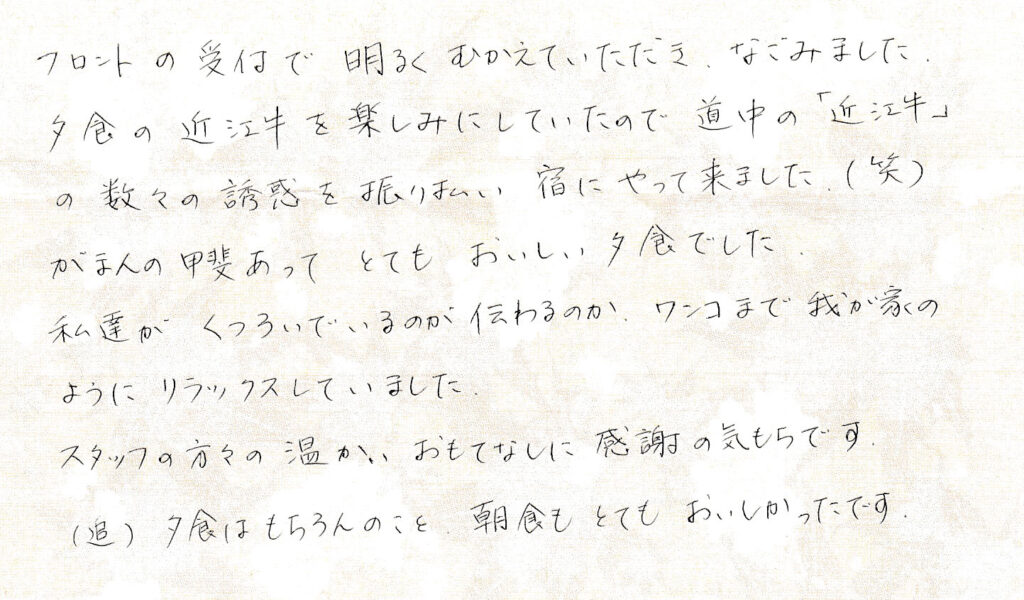 フロントの受付で 明るく むかえていただき、なごみました。
夕食の 近江牛を楽しみにしていたので 道中の「近江牛」
の 数々の 誘惑を 振り払い 宿に やって来ました。(笑)
がまんの甲斐あって とても おいしい夕食でした。
私達が くつろいでいるのが 伝わるのか、ワンコまで 我が家の
ように リラックスしていました。
スタッフの方々の 温かい おもてなしに 感謝の気もちです。
(追) 夕食はもちろんのこと、朝食も とても おいしかったです。